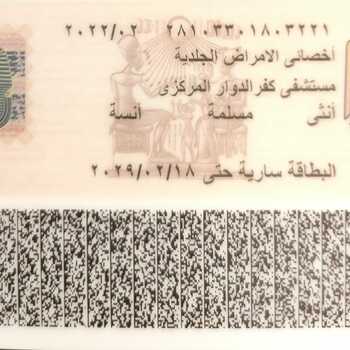 ٢٨١٠٣٣٠١٨٠٣٢٢١ ٢٠٢٢/٠٢
أخصائى الامراض الجلدية
مستشفى كفرالدوار المركزى
أنثى مسلمة آنسة
البطاقة سارية حتى ٢٠٢٩/٠٢/١٨